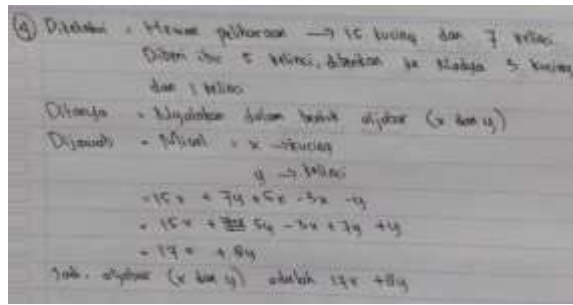 ④ Diketahui : Hewan peliharaan → 15 kucing dan 7 kelinci
Diberi ibu 5 kelinci, diberikan ke Nadya 3 kucing
dan 1 kelinci
Ditanya = Nyatakan dalam bentuk aljabar (x dan y)
Dijawab = Misal = x → kucing
y → kelinci
= 15x + 7y + 5x - 3x - y
= 15x + 5y - 3x + 7y + y
= 17x + 8y
Jadi, aljabar (x dan y) adalah 17x + 8y